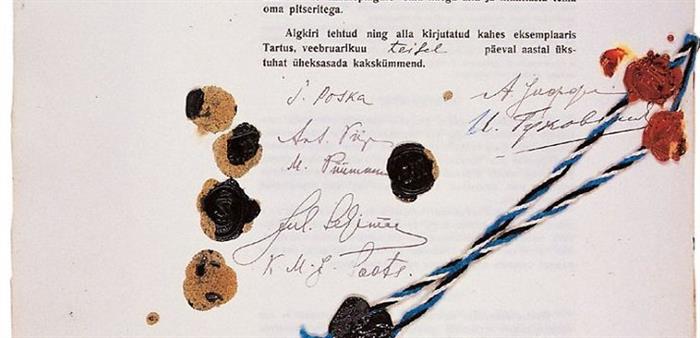 oma pitseritega.
Algkiri tehtud ning alla kirjutatud kahes eksemplaaris
Tartus, veebruarikuu teisel päeval aastal üks-
tuhat üheksasada kakskümmend.
J. Poska
Ant. Piip
M. Püümann
Jul. Seljamaa
А. Иоффе
И. Гуковский